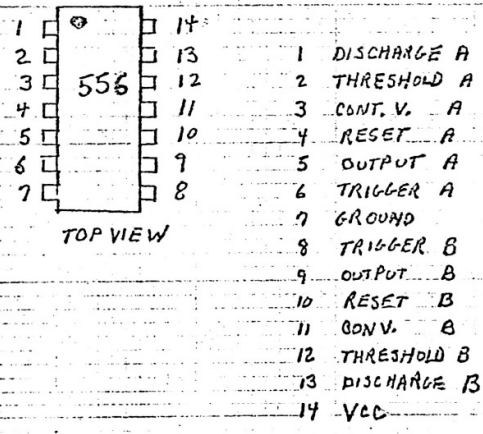 1 14
2 13
3 556 12
4 11
5 10
6 9
7 8
TOP VIEW
1 DISCHARGE A
2 THRESHOLD A
3 CONT. V. A
4 RESET A
5 OUTPUT A
6 TRIGGER A
7 GROUND
8 TRIGGER B
9 OUTPUT B
10 RESET B
11 CONV. B
12 THRESHOLD B
13 DISCHARGE B
14 VCC